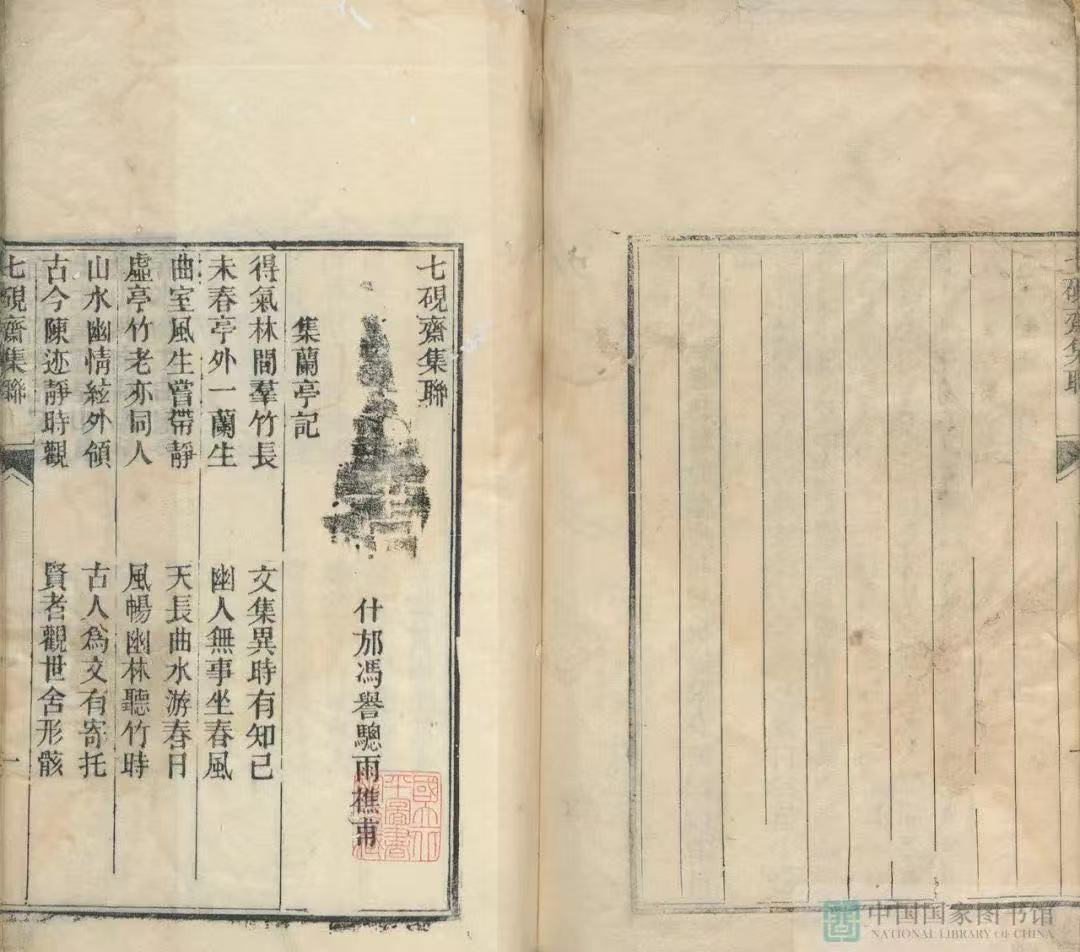 七硯齋集聯
七硯齋集聯
什邡馮譽驄雨樵甫
國立北
平圖書
集蘭亭記
得氣林間羣竹長　文集異時有知己
未春亭外一蘭生　幽人無事坐春風
曲室風生嘗帶靜　天長曲水游春日
虛亭竹老亦同人　風暢幽林聽竹時
山水幽情絃外領　古人爲文有寄托
古今陳迹靜時觀　賢者觀世舍形骸
七硯齋集聯　一
中国国家图书馆
NATIONAL LIBRARY OF CHINA